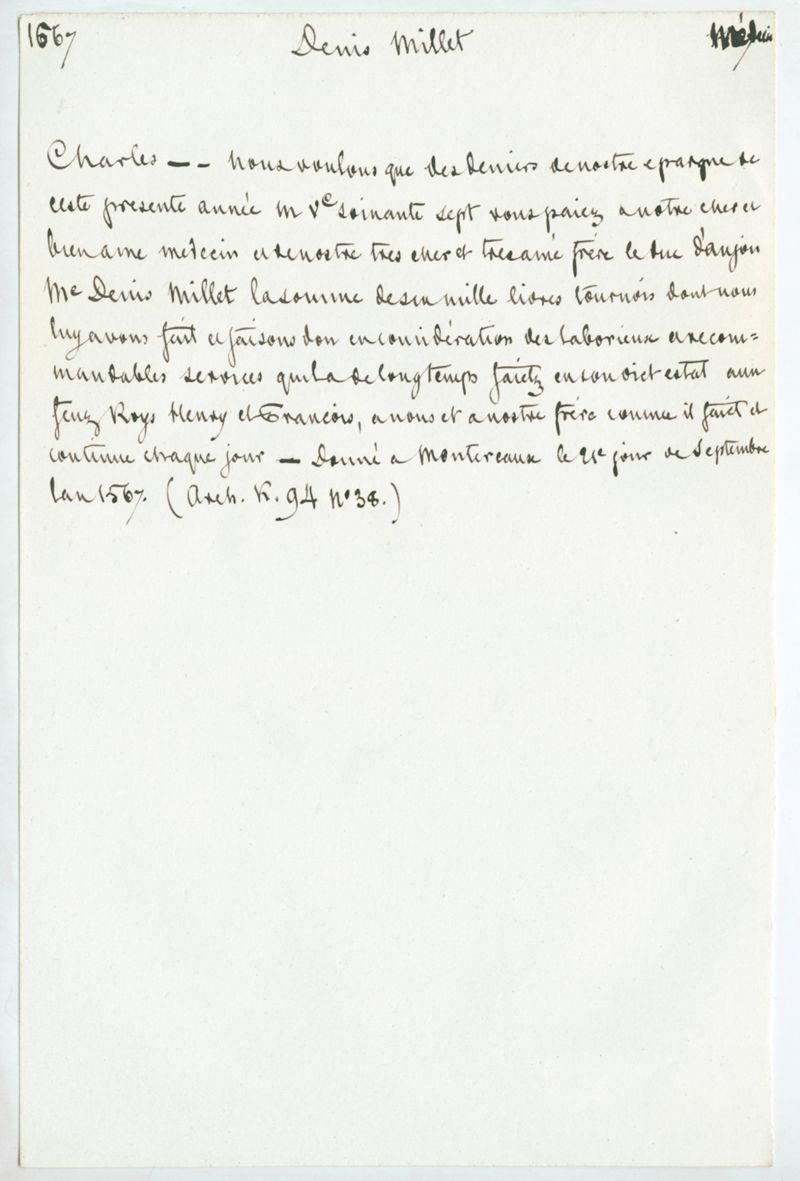 1567 Denis Millet Médecin
Charles — - Nous voulons que des deniers de nostre epargne de
ceste presente année m Vc soixante sept vous paiez a notre cher et
bien ame médecin et de nostre tres cher et tres amé frère le duc d'anjou
Me Denis Millet la somme de six mille livres tournois dont nous
luy avons fait et faisons don en considération des laborieux et recom=
mandables services quil a de longtemps faictz en son dict estat aux
feuz Roys Henry et François, a nous et a nostre frère comme il faict et
continue chaque jour — Donné a Montereaux le 21e jour de Septembre
lan 1567. (Arch. K. 94 No 38.)